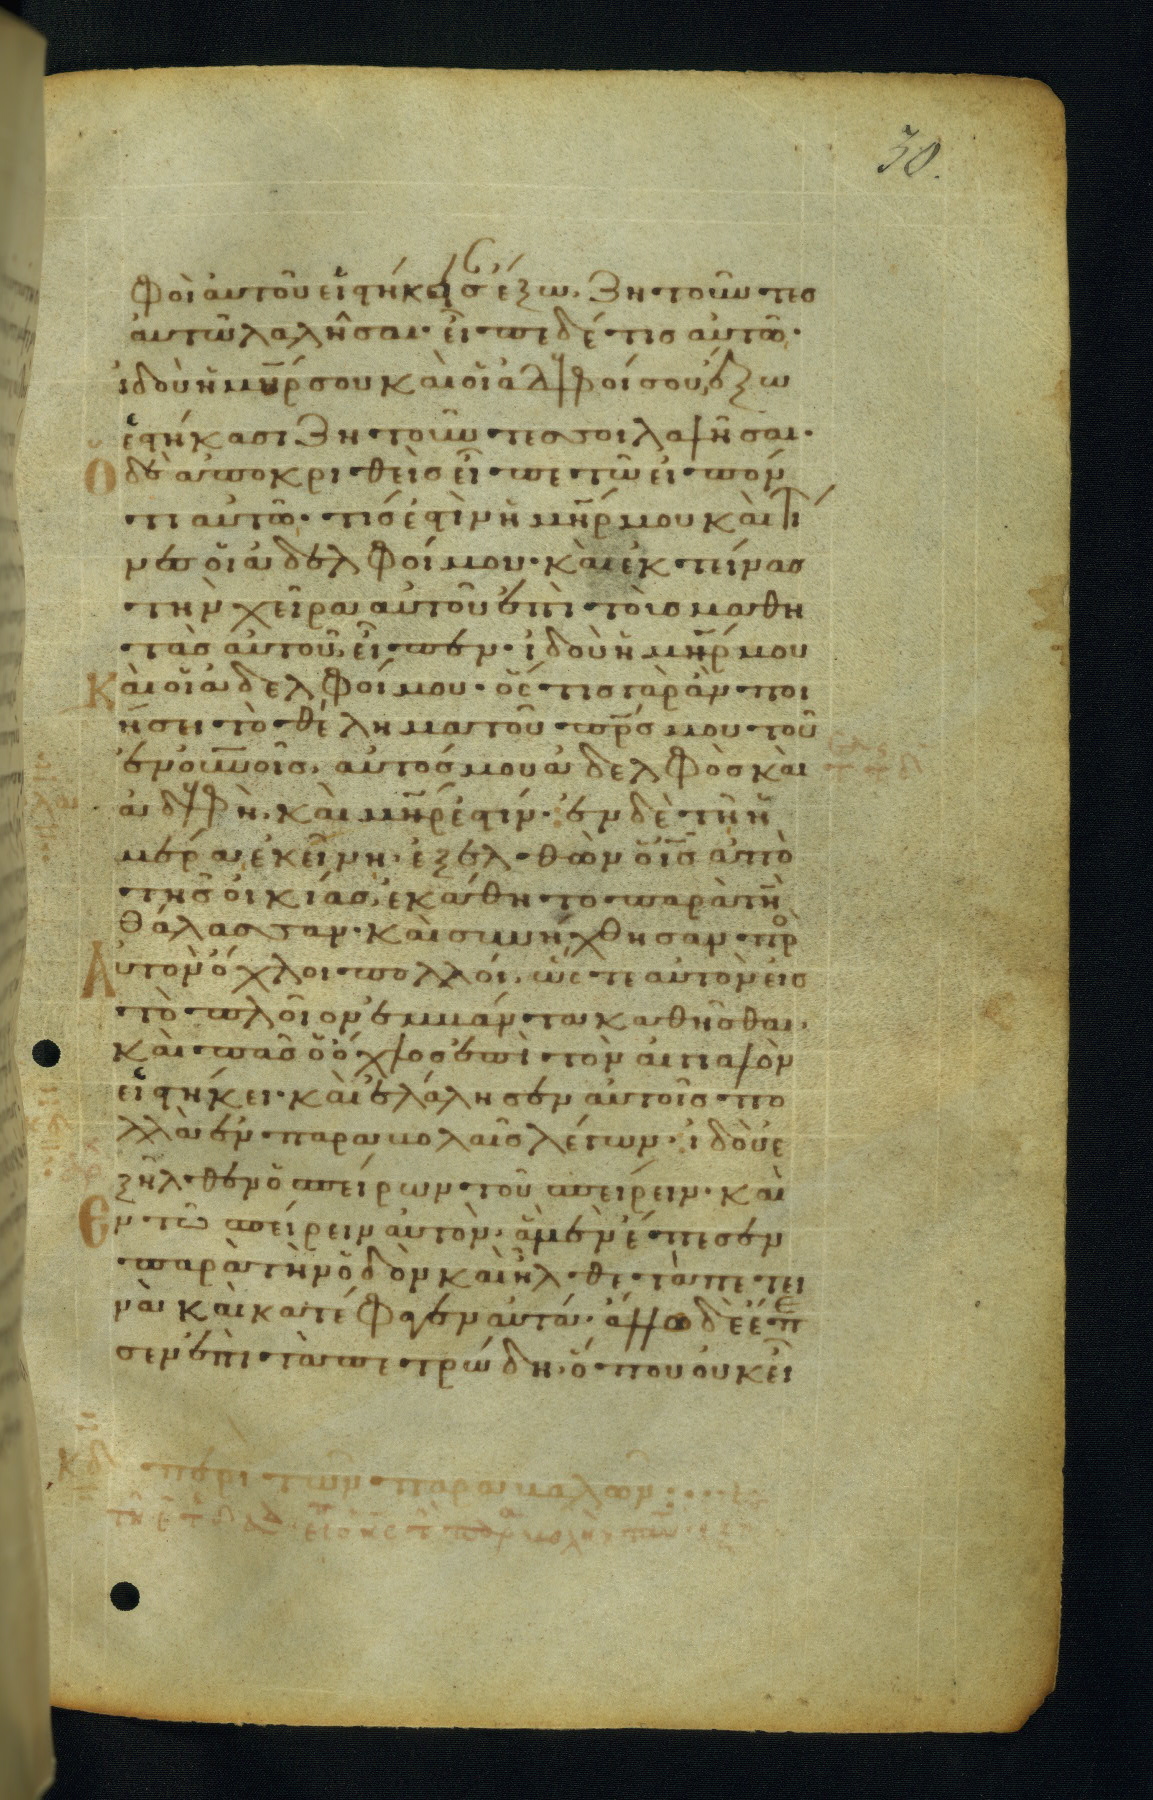 30.
φοὶ αυτοῦ εἱστήκεισ έξω. Ζητοῦντεσ
ἀυτῶ λαλῆσαι· εἶπε δέ τισ αὐτῶ·
ἰδοὺ ἡ μη̅ρ σου καὶ οἱ ἀδελφοί σου έξω
ἑστήκασι Ζητοῦντεσ σοι λαλῆσαι·
Ὁ δὲ ἀποκριθεὶσ εἶπε τῶ εἰπόν
τι αὐτῶ· τίσ ἐστὶν ἡ μη̅ρ μου καὶ τί
νεσ οἱ ἀδελφοί μου· καὶ ἐκτείνασ
τὴν χεῖρα αὐτοῦ ἐπὶ τοὺσ μαθη
τὰσ αὐτοῦ, εἶπεν· ἰδοὺ ἡ μη̅ρ μου
Καὶ οἱ ἀδελφοί μου· ὅστισ γὰρ ἂν ποι
ήσει τὸ θέλημα τοῦ πρ̅σ μου τοῦ
ἐν οὐνοῖσ. αυτόσ μου ἀδελφὸσ καὶ
ἀδελφὴ. καὶ μη̅ρ ἐστίν· ἐν δὲ τῆ ἡ
μέρα ἐκείνη. ἐξελθὼν ὁ ἰσ̅ ἀπὸ
τῆσ οἰκίασ, ἐκάθητο παρὰ τὴν
θάλασσαν· καὶ συνήχθησαν πρ
Αυτὸν ὄχλοι πολλοί. ὥστε αὐτὸν εἰσ
τὸ πλοῖον ἐμβάντα καθῆσθαι.
καὶ πᾶσ ὁ ὄχλοσ ἐπὶ τὸν αἰγιαλὸν
εἱστήκει· καὶ ἐλάλησεν αὐτοῖσ πο
λλὰ ἐν παραβολαῖσ λέγων· ἰδοὺ ἐ
ξῆλθεν ὁ σπείρων τοῦ σπείρειν· καὶ
Εν τῶ σπείρειν αὐτὸν. ἃ μὲν ἔπεσεν
παρὰ τὴν ὁδὸν καὶ ἦλθε τὰ πετει
νὰ καὶ κατέφαγεν αὐτά· ἄλλα δὲ ἔπε
σεν ἐπὶ τὰ πετρώδη. ὅπου ουκ εἶ
περὶ τῶν παραβολῶν